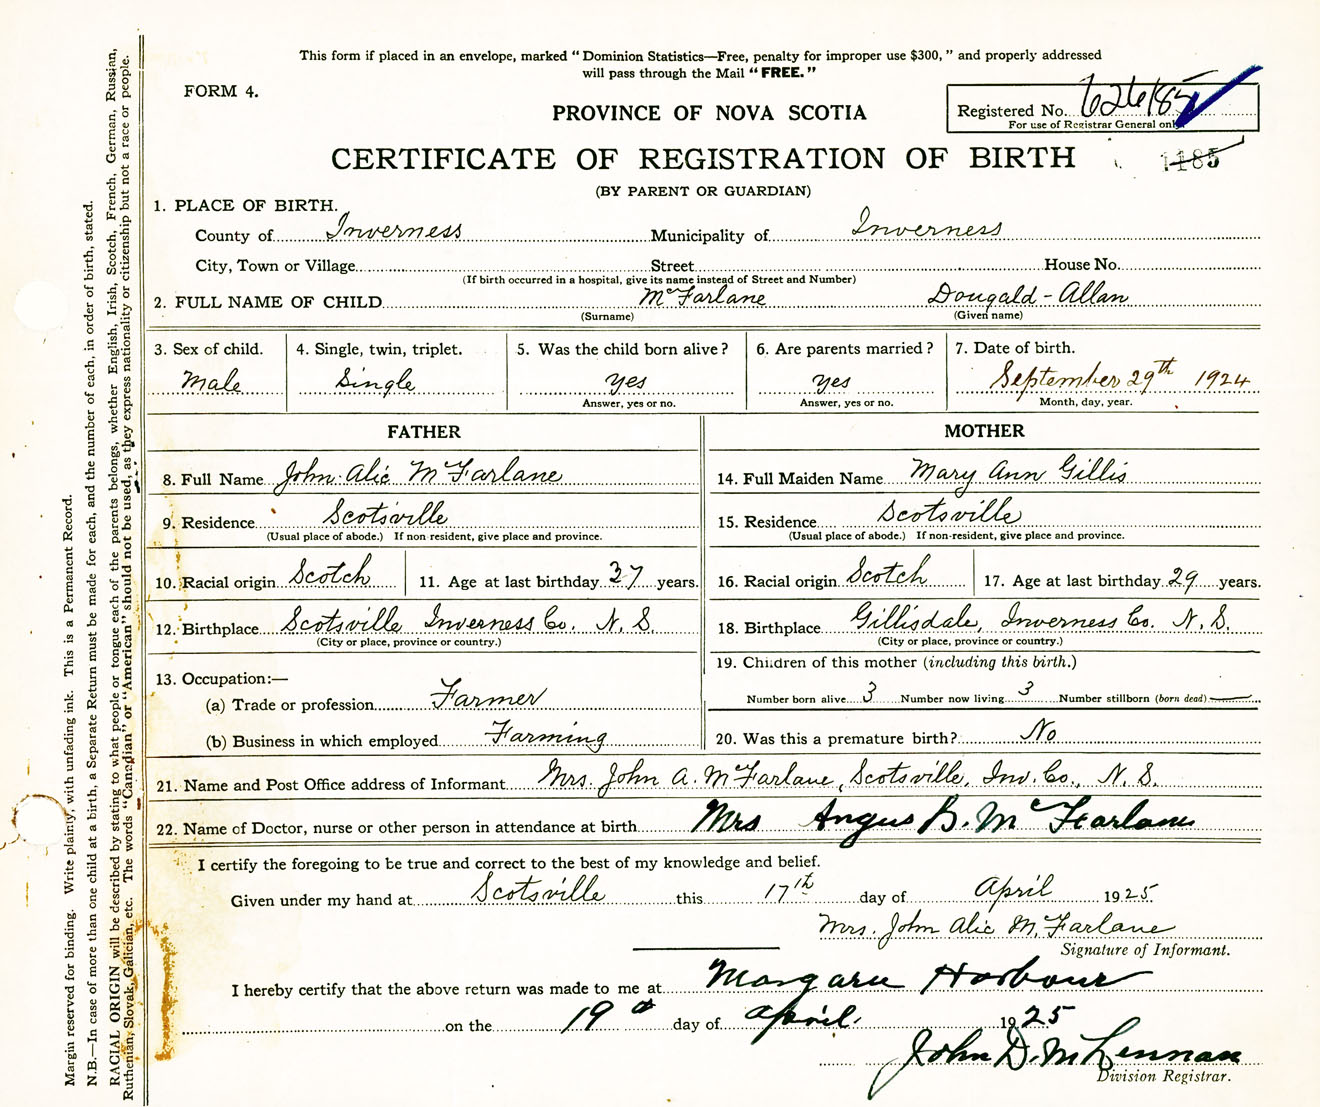 This form if placed in an envelope, marked “Dominion Statistics—Free, penalty for improper use $300,” and properly addressed
will pass through the Mail “FREE.”
FORM 4.
PROVINCE OF NOVA SCOTIA
Registered No. 626185
For use of Registrar General only
CERTIFICATE OF REGISTRATION OF BIRTH
1185
(BY PARENT OR GUARDIAN)
1. PLACE OF BIRTH.
County of Inverness Municipality of Inverness
City, Town or Village Street House No.
(If birth occurred in a hospital, give its name instead of Street and Number)
2. FULL NAME OF CHILD McFarlane Dougald-Allan
(Surname) (Given name)
3. Sex of child. 4. Single, twin, triplet. 5. Was the child born alive? 6. Are parents married? 7. Date of birth.
Male Single yes yes September 29th 1924
Answer, yes or no. Answer, yes or no. Month, day, year.
FATHER MOTHER
8. Full Name John Alic McFarlane
14. Full Maiden Name Mary Ann Gillis
9. Residence Scotsville
(Usual place of abode.) If non-resident, give place and province.
15. Residence Scotsville
(Usual place of abode.) If non-resident, give place and province.
10. Racial origin Scotch 11. Age at last birthday 37 years.
16. Racial origin Scotch 17. Age at last birthday 29 years.
12. Birthplace Scotsville Inverness Co. N. S.
(City or place, province or country.)
18. Birthplace Gillisdale, Inverness Co. N. S.
(City or place, province or country.)
13. Occupation:—
(a) Trade or profession Farmer
(b) Business in which employed Farming
19. Children of this mother (including this birth.)
Number born alive 3 Number now living 3 Number stillborn (born dead) —
20. Was this a premature birth? No
21. Name and Post Office address of Informant Mrs. John A. McFarlane, Scotsville, Inv. Co., N. S.
22. Name of Doctor, nurse or other person in attendance at birth Mrs Angus B. McFarlane
I certify the foregoing to be true and correct to the best of my knowledge and belief.
Given under my hand at Scotsville this 17th day of April 1925.
Mrs. John Alic McFarlane
Signature of Informant.
I hereby certify that the above return was made to me at Margaree Harbour
on the 19th day of April. 1925
John D. McLennan
Division Registrar.
Margin reserved for binding. Write plainly, with unfading ink. This is a Permanent Record.
N.B.—In case of more than one child at a birth, a Separate Return must be made for each, and the number of each, in order of birth, stated.
RACIAL ORIGIN will be described by stating to what people or tongue each of the parents belongs, whether English, Irish, Scotch, French, German, Russian,
Ruthenian, Slovak, Galician, etc. The words “Canadian” or “American” should not be used, as they express nationality or citizenship but not a race or people.